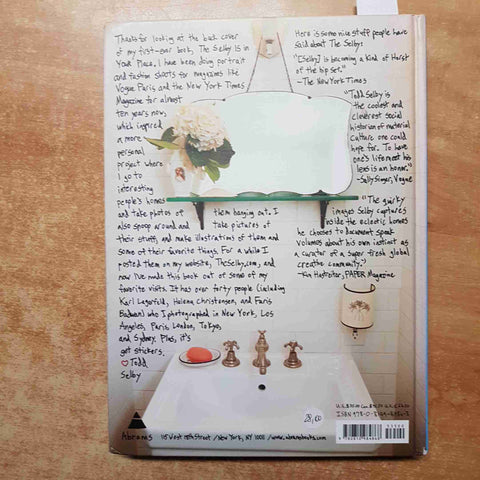 Thanks for looking at the back cover
of my first-ever book, The Selby Is in
Your Place. I have been doing portrait
and fashion shoots for magazines like
Vogue Paris and the New York Times
Magazine for almost
ten years now,
which inspired
a more
personal
project where
I go to
interesting
people's homes
and take photos of them hanging out. I
also snoop around and take pictures of
their stuff, and make illustrations of them and
some of their favorite things. For a while I
posted them on my website, TheSelby.com, and
now I've made this book out of some of my
favorite visits. It has over forty people (including
Karl Lagerfeld, Helena Christensen, and Faris
Badwan) who I photographed in New York, Los
Angeles, Paris, London, Tokyo,
and Sydney. Plus, it's
got stickers.
Todd
Selby
Here is some nice stuff people have
said about The Selby:
"[Selby] is becoming a kind of Hearst
of the hip set."
—The New York Times
"Todd Selby is
the coolest and
cleverest social
historian of material
culture one could
hope for. To have
one's life meet his
lens is an honor."
—Sally Singer, Vogue
"The quirky
images Selby captures
inside the eclectic homes
he chooses to document speak
volumes about his own instinct as
a curator of a super fresh global
creative community."
—Kim Hastreiter, PAPER Magazine
28,00
Abrams
115 West 18th Street / New York, NY 10011 / www.abramsbooks.com